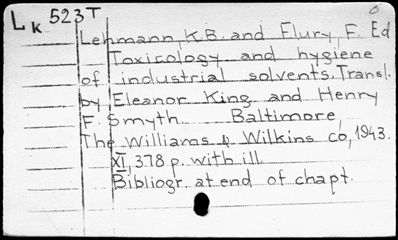 Lk 523T 6.
Lehmann K.B. and Flury, F. Ed
Toxicology and hygiene
of industrial solvents. Transl.
by Eleanor King and Henry
F. Smyth. Baltimore,
The Williams & Wilkins co, 1943.
XI, 378 p. with ill.
Bibliogr. at end of chapt.